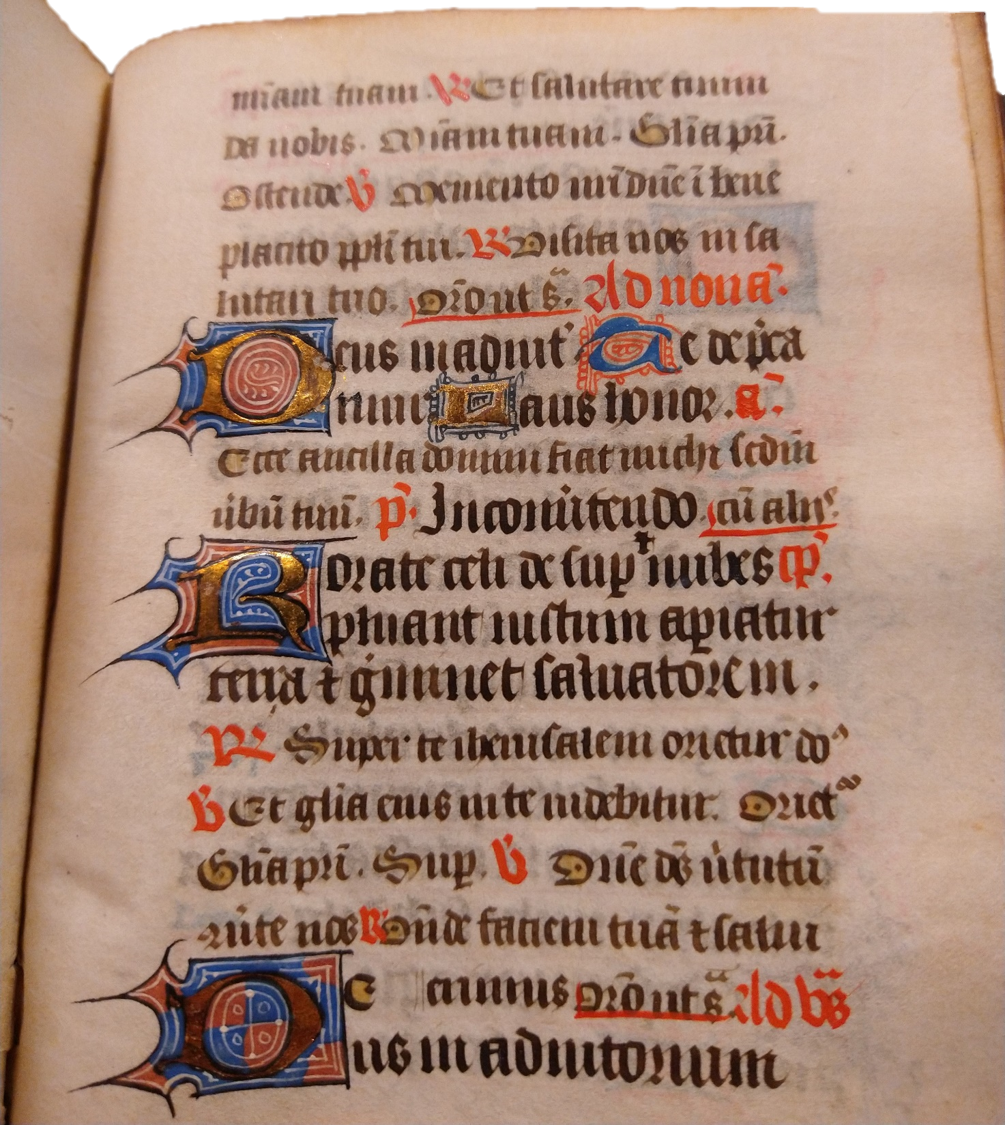 mīam tuam ℟ Et salutare tuum
da nobis. Miam̄ tuam. Glīa prī.
Ostende ℣ Memento nr̄i dn̄e ī bene
placito ppl̄i tui. ℟ Visita nos in sa
lutari tuo. Orō ut sᵃ. Ad nonā.
Deus in adiut' Ae depͥca
mur Laus honor. a.
Ecce ancilla domini fiat michi scdm̄
ūbū tuū. p̄. In conūtendo cū aliis.
Rorate celi de sup̱ ⁊ nubes
pluant iustum ap̱iatur
terra ⁊ gͥminet saluatorem.
℟ Super te iherusalem orietur do
℣ Et glīa eius in te videbitur. Oriet
Glīa prī. Sup̱. ℣ Dn̄e dē ūtutū
9ūte nos ℟ On̄de faciem tuā ⁊ salui
De erimus Orō ut sᵃ. Ad vēs
us in adiutorium